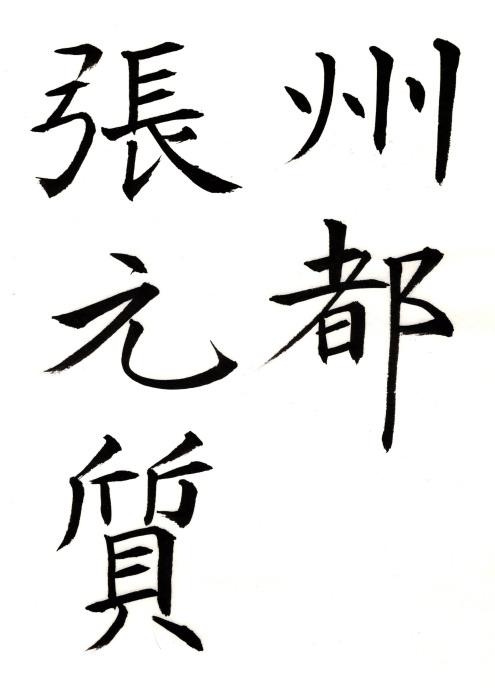 州都
張元質